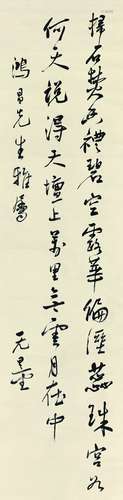 掃石焚香禮碧空露華偏溼蕊珠宮如
何文說得天壇上萬里無雲月在中
鴻昌先生雅屬
无量